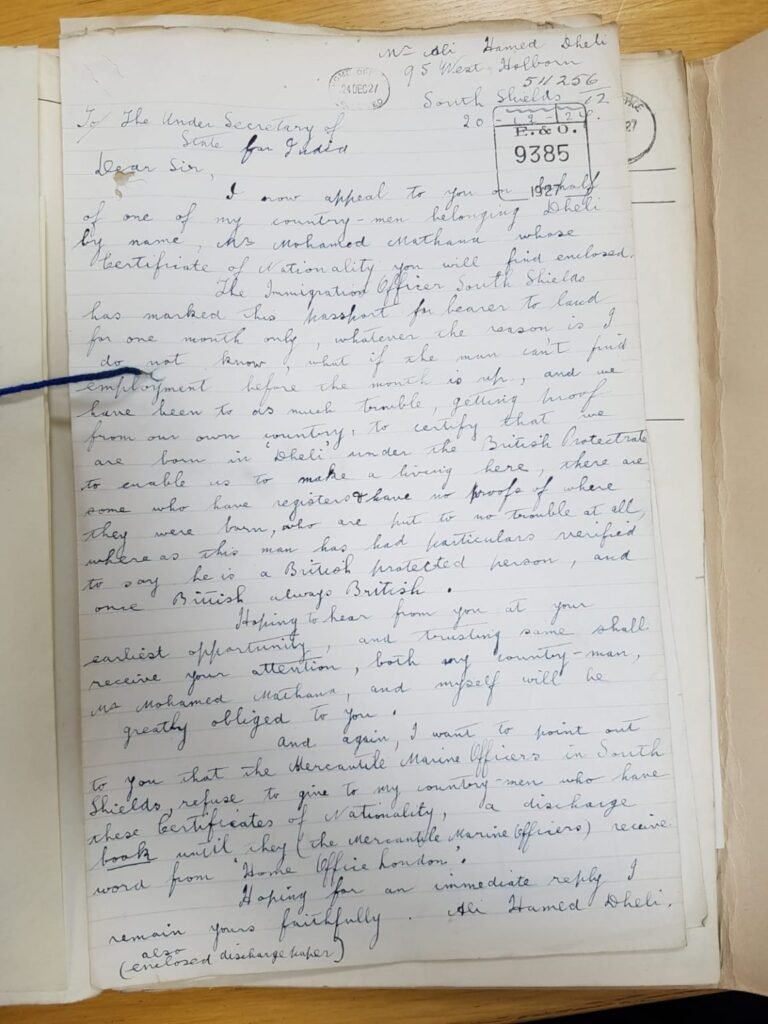 Mr Ali Hamed Dheli
95 West Holborn
511256
South Shields 12
20-12-27.
24 DEC 27
E. & O.
9385
1927
27
To/ The Under Secretary of
State for India
Dear Sir,
I now appeal to you on behalf
of one of my country-men belonging Dheli
by name, Mr Mohamed Mathana whose
Certificate of Nationality you will find enclosed.
The Immigration Officer South Shields
has marked this passport for bearer to land
for one month only, whatever the reason is I
do not know, what if the man can't find
employment before the month is up, and we
have been to as much trouble, getting proof
from our own country, to certify that we
are born in 'Dheli' under the British Protectrate
to enable us to make a living here, there are
some who have registers & have no proofs of where
they were born, who are put to no trouble at all,
where as this man has had particulars verified
to say he is a British protected person, and
once British always British.
Hoping to hear from you at your
earliest opportunity, and trusting same shall
receive your attention, both my country-man,
Mr Mohamed Mathana, and myself will be
greatly obliged to you.
And again, I want to point out
to you that the Mercantile Marine Officers in South
Shields, refuse to give to my country-men who have
these Certificates of Nationality, a discharge
book until they (the Mercantile Marine Officers) receive
word from 'Home Office London'.
Hoping for an immediate reply I
remain yours faithfully. Ali Hamed Dheli.
also
(enclosed discharge paper)